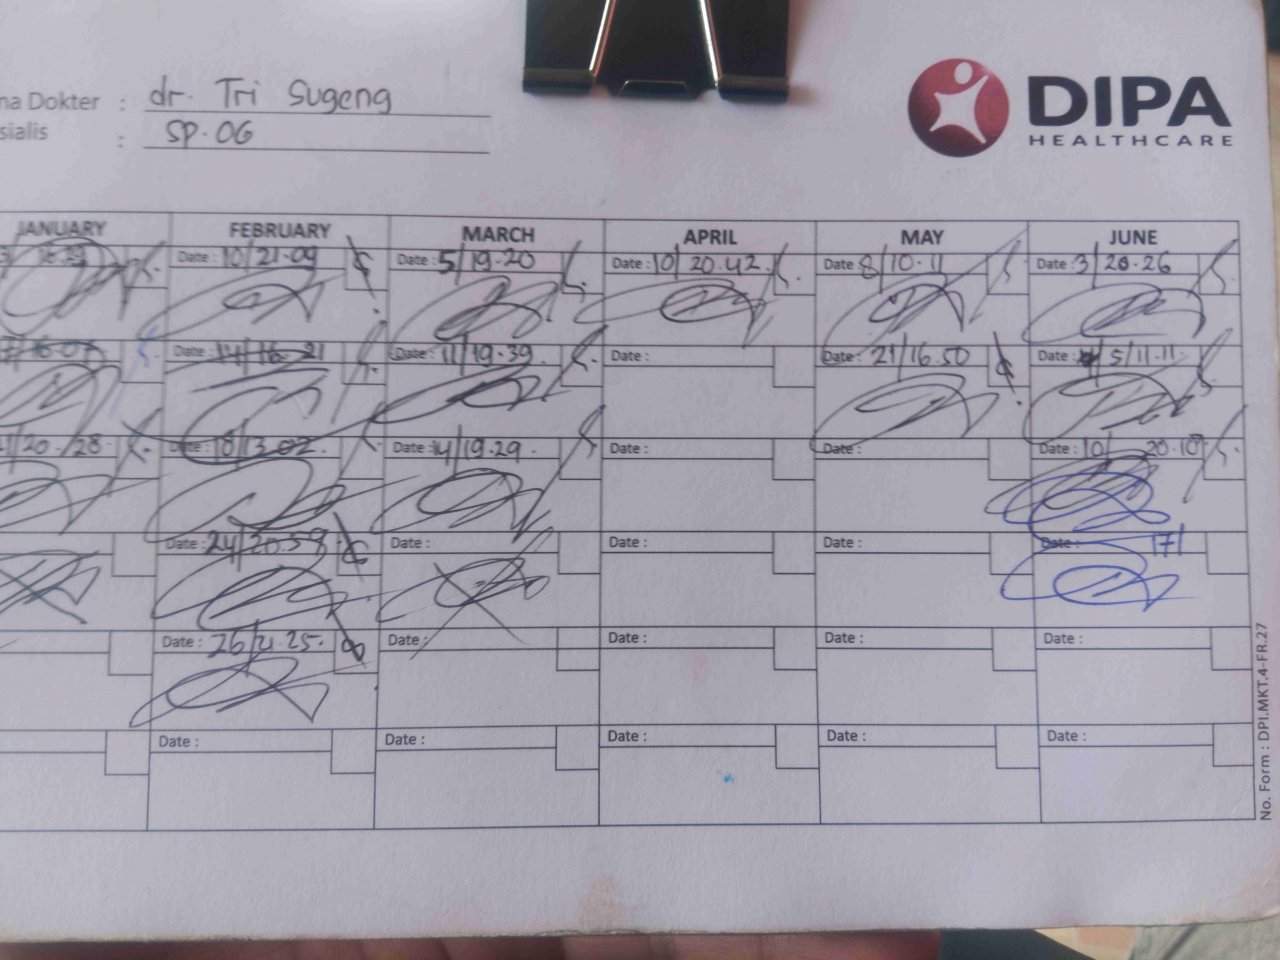 na Dokter : dr. Tri Sugeng
sialis : SP.OG
DIPA
HEALTHCARE
JANUARY FEBRUARY MARCH APRIL MAY JUNE
Date : 10/21.09 Date : 5/19.20 Date : 10/20.42 Date 8/10.11 Date : 3/20.26
Date : 14/16.21 Date : 11/19.39 Date : Date : 21/16.50 Date : 5/11.11
/20./28 Date : 18/13.02. Date : 14/19.29. Date : Date : Date : 10/ 20.10
Date : 24/20.59 Date : Date : Date : Date : 17/
Date : 26/21.25. Date : Date : Date : Date :
Date : Date : Date : Date : Date :
No. Form : DPI.MKT.4-FR.27